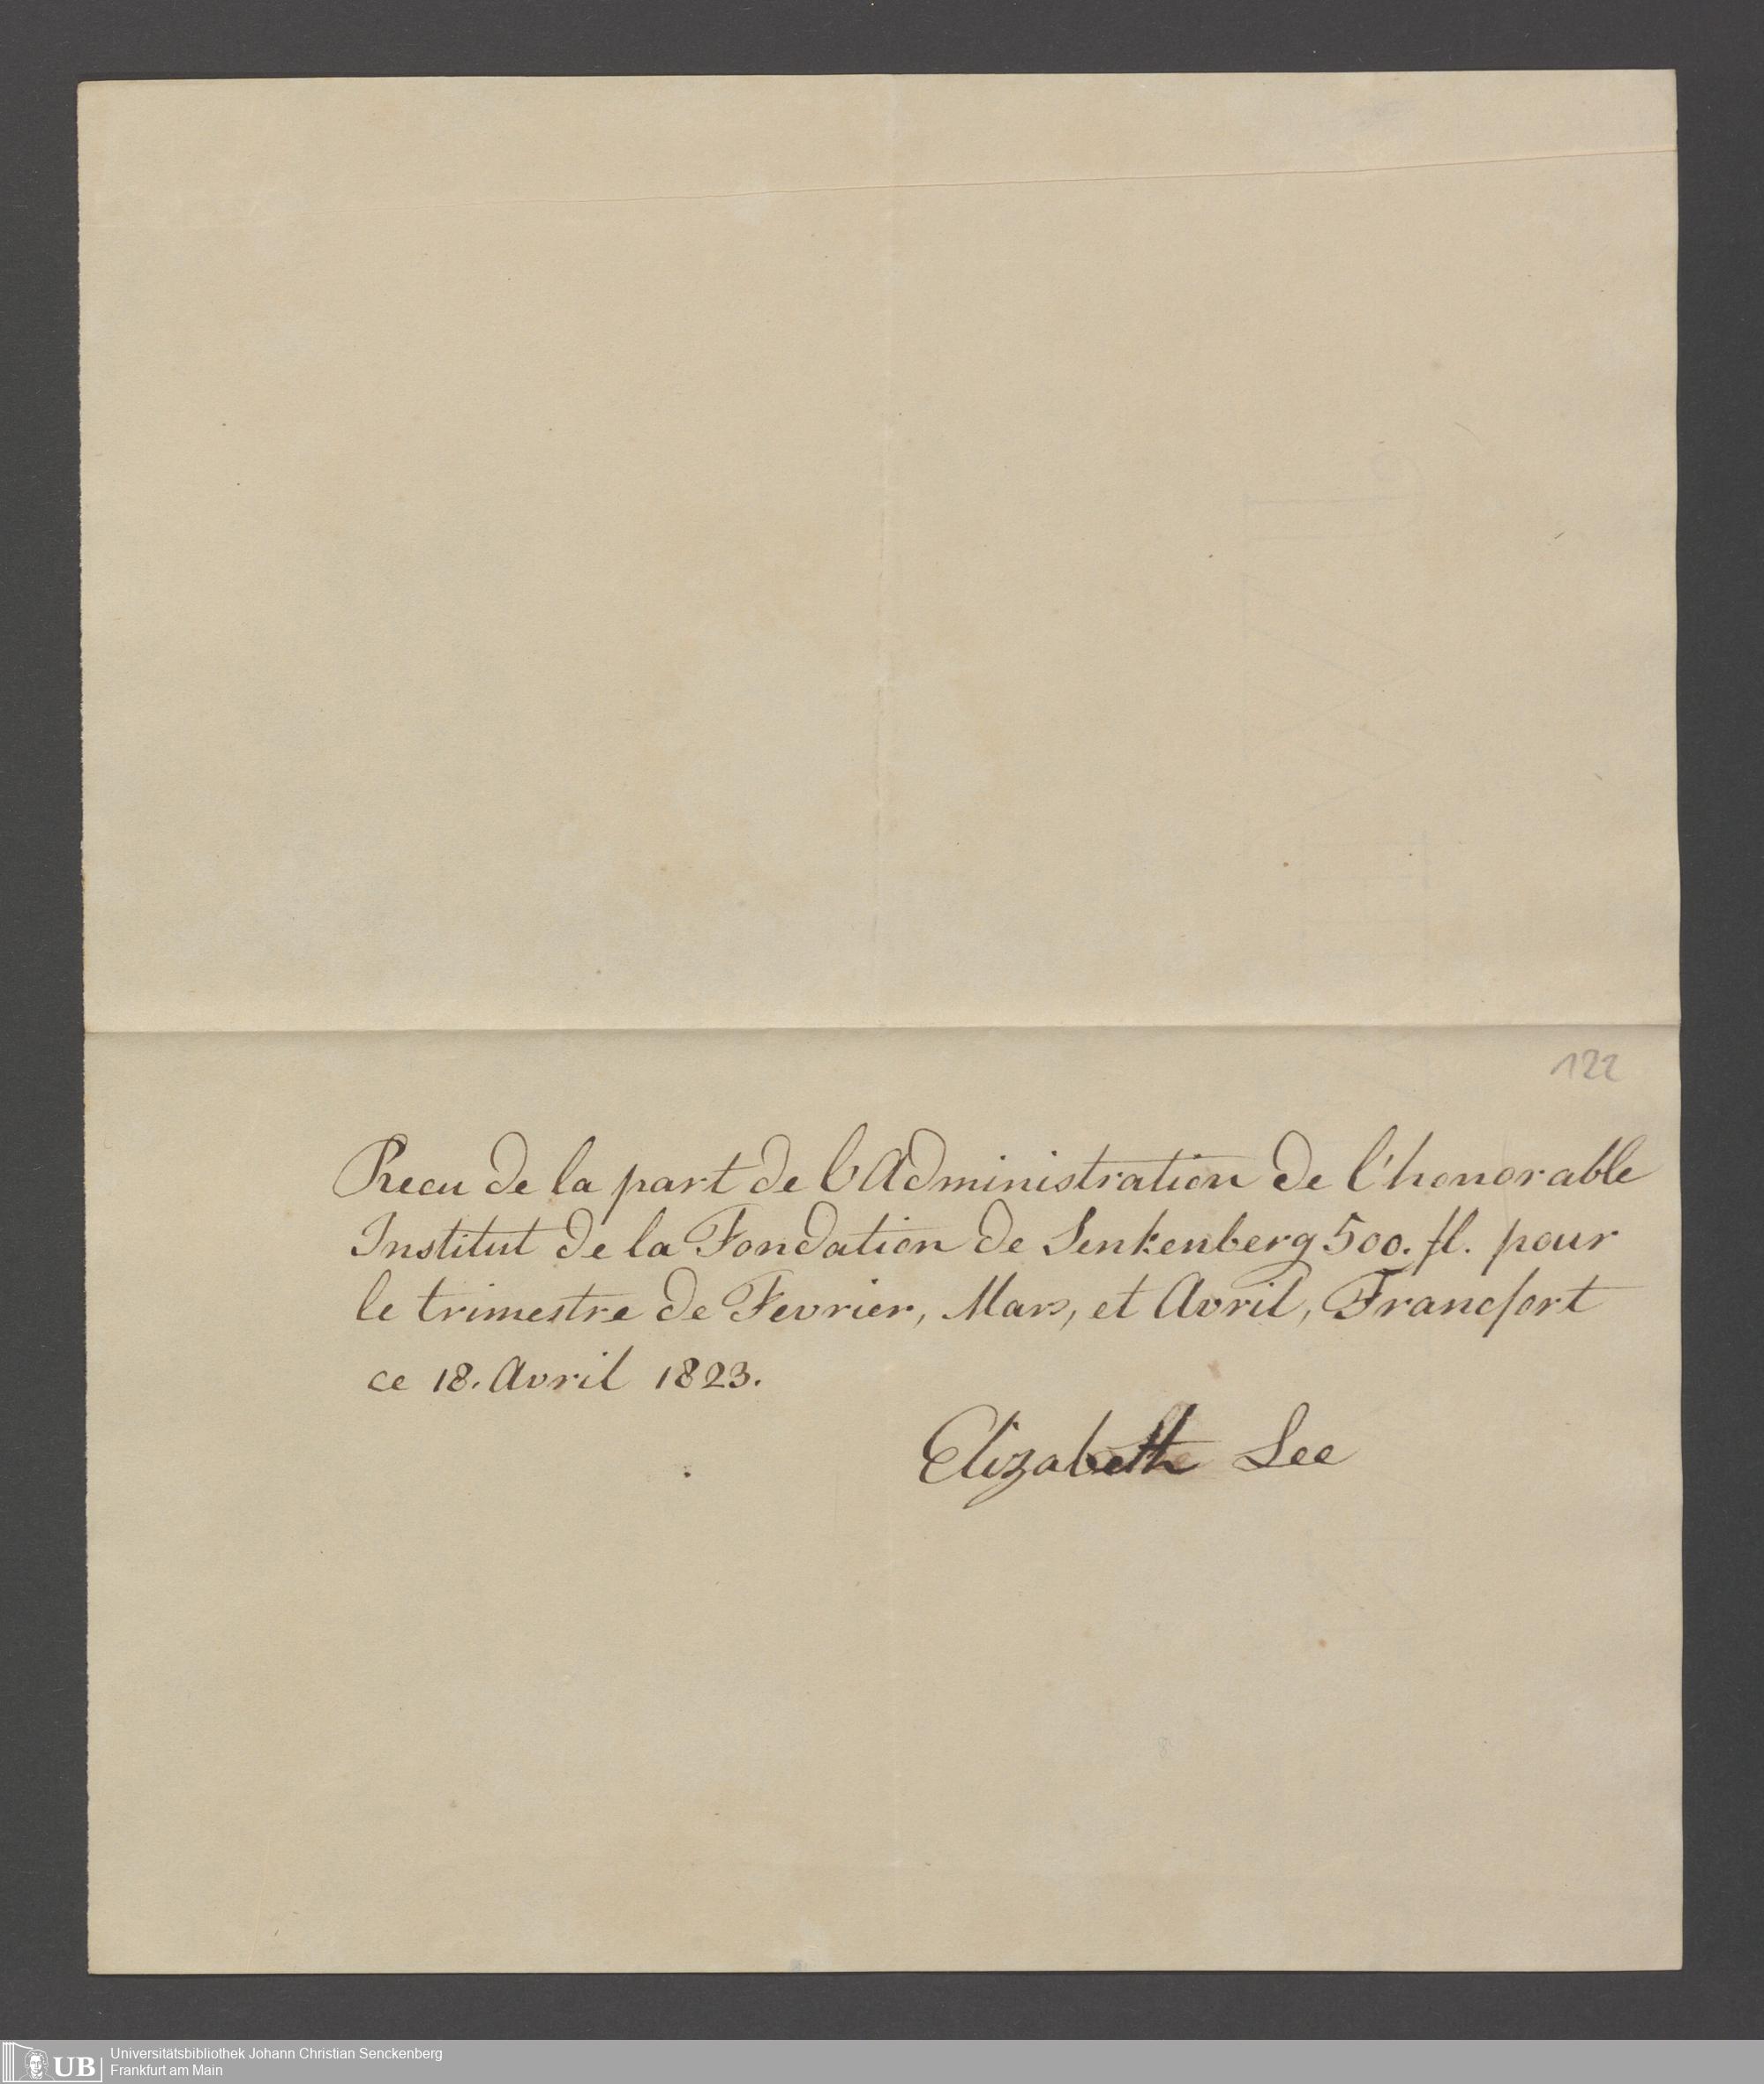 122
Recu de la part de l'Administration de l'honorable
Institut de la Fondation de Senkenberg 500. fl. pour
le trimestre de Fevrier, Mars, et Avril, Francfort
ce 18. Avril 1823.
Elizabeth Lee
UB
Universitätsbibliothek Johann Christian Senckenberg
Frankfurt am Main